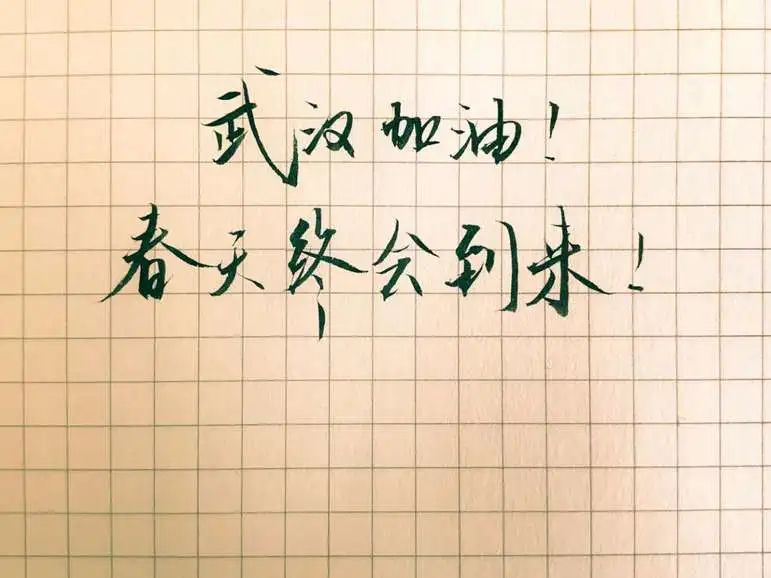 武汉加油！
春天终会到来！